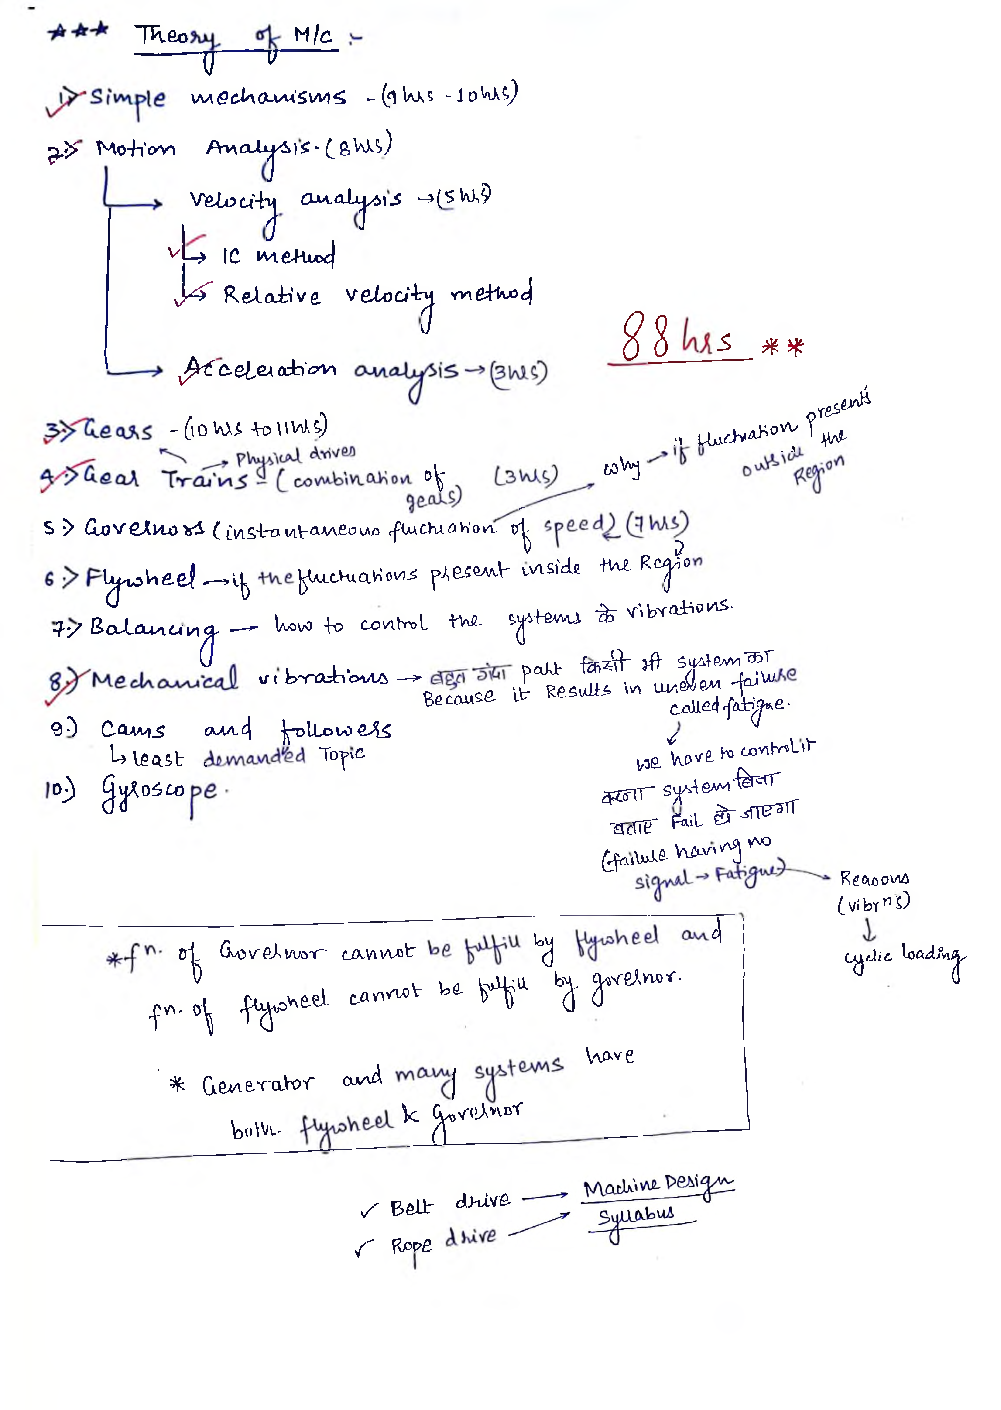 *** Theory of M/c :-
1:> Simple mechanisms - (9hrs - 10hrs)
2:> Motion Analysis. (8hrs)
Velocity analysis → (5hrs)
IC method
Relative velocity method
88hrs **
Acceleration analysis → (3hrs)
3:> Gears - (10hrs to 11hrs)
→ Physical drives
4:> Gear Trains - (combination of gears) (3hrs)
why → if fluctuation presents outside the Region
5:> Governors (instantaneous fluctuation of speed) (7hrs)
6:> Flywheel → if the fluctuations present inside the Region
7:> Balancing — how to control the systems के vibrations.
8:) Mechanical vibrations → बहुत गंदा part किसी भी system का
Because it Results in uneven failure
called fatigue.
9:) Cams and followers
↳ least demanded Topic
we have to control it
10:) Gyroscope.
वरना system बिना
बताए Fail हो जाएगा
(failure having no
signal → Fatigue) → Reasons
(vibrⁿs)
↓
cyclic loading
* fⁿ. of Governor cannot be fulfill by flywheel and
fⁿ. of flywheel cannot be fulfill by governor.
* Generator and many systems have
both flywheel & Governor
✓ Belt drive → Machine Design
Syllabus
✓ Rope drive